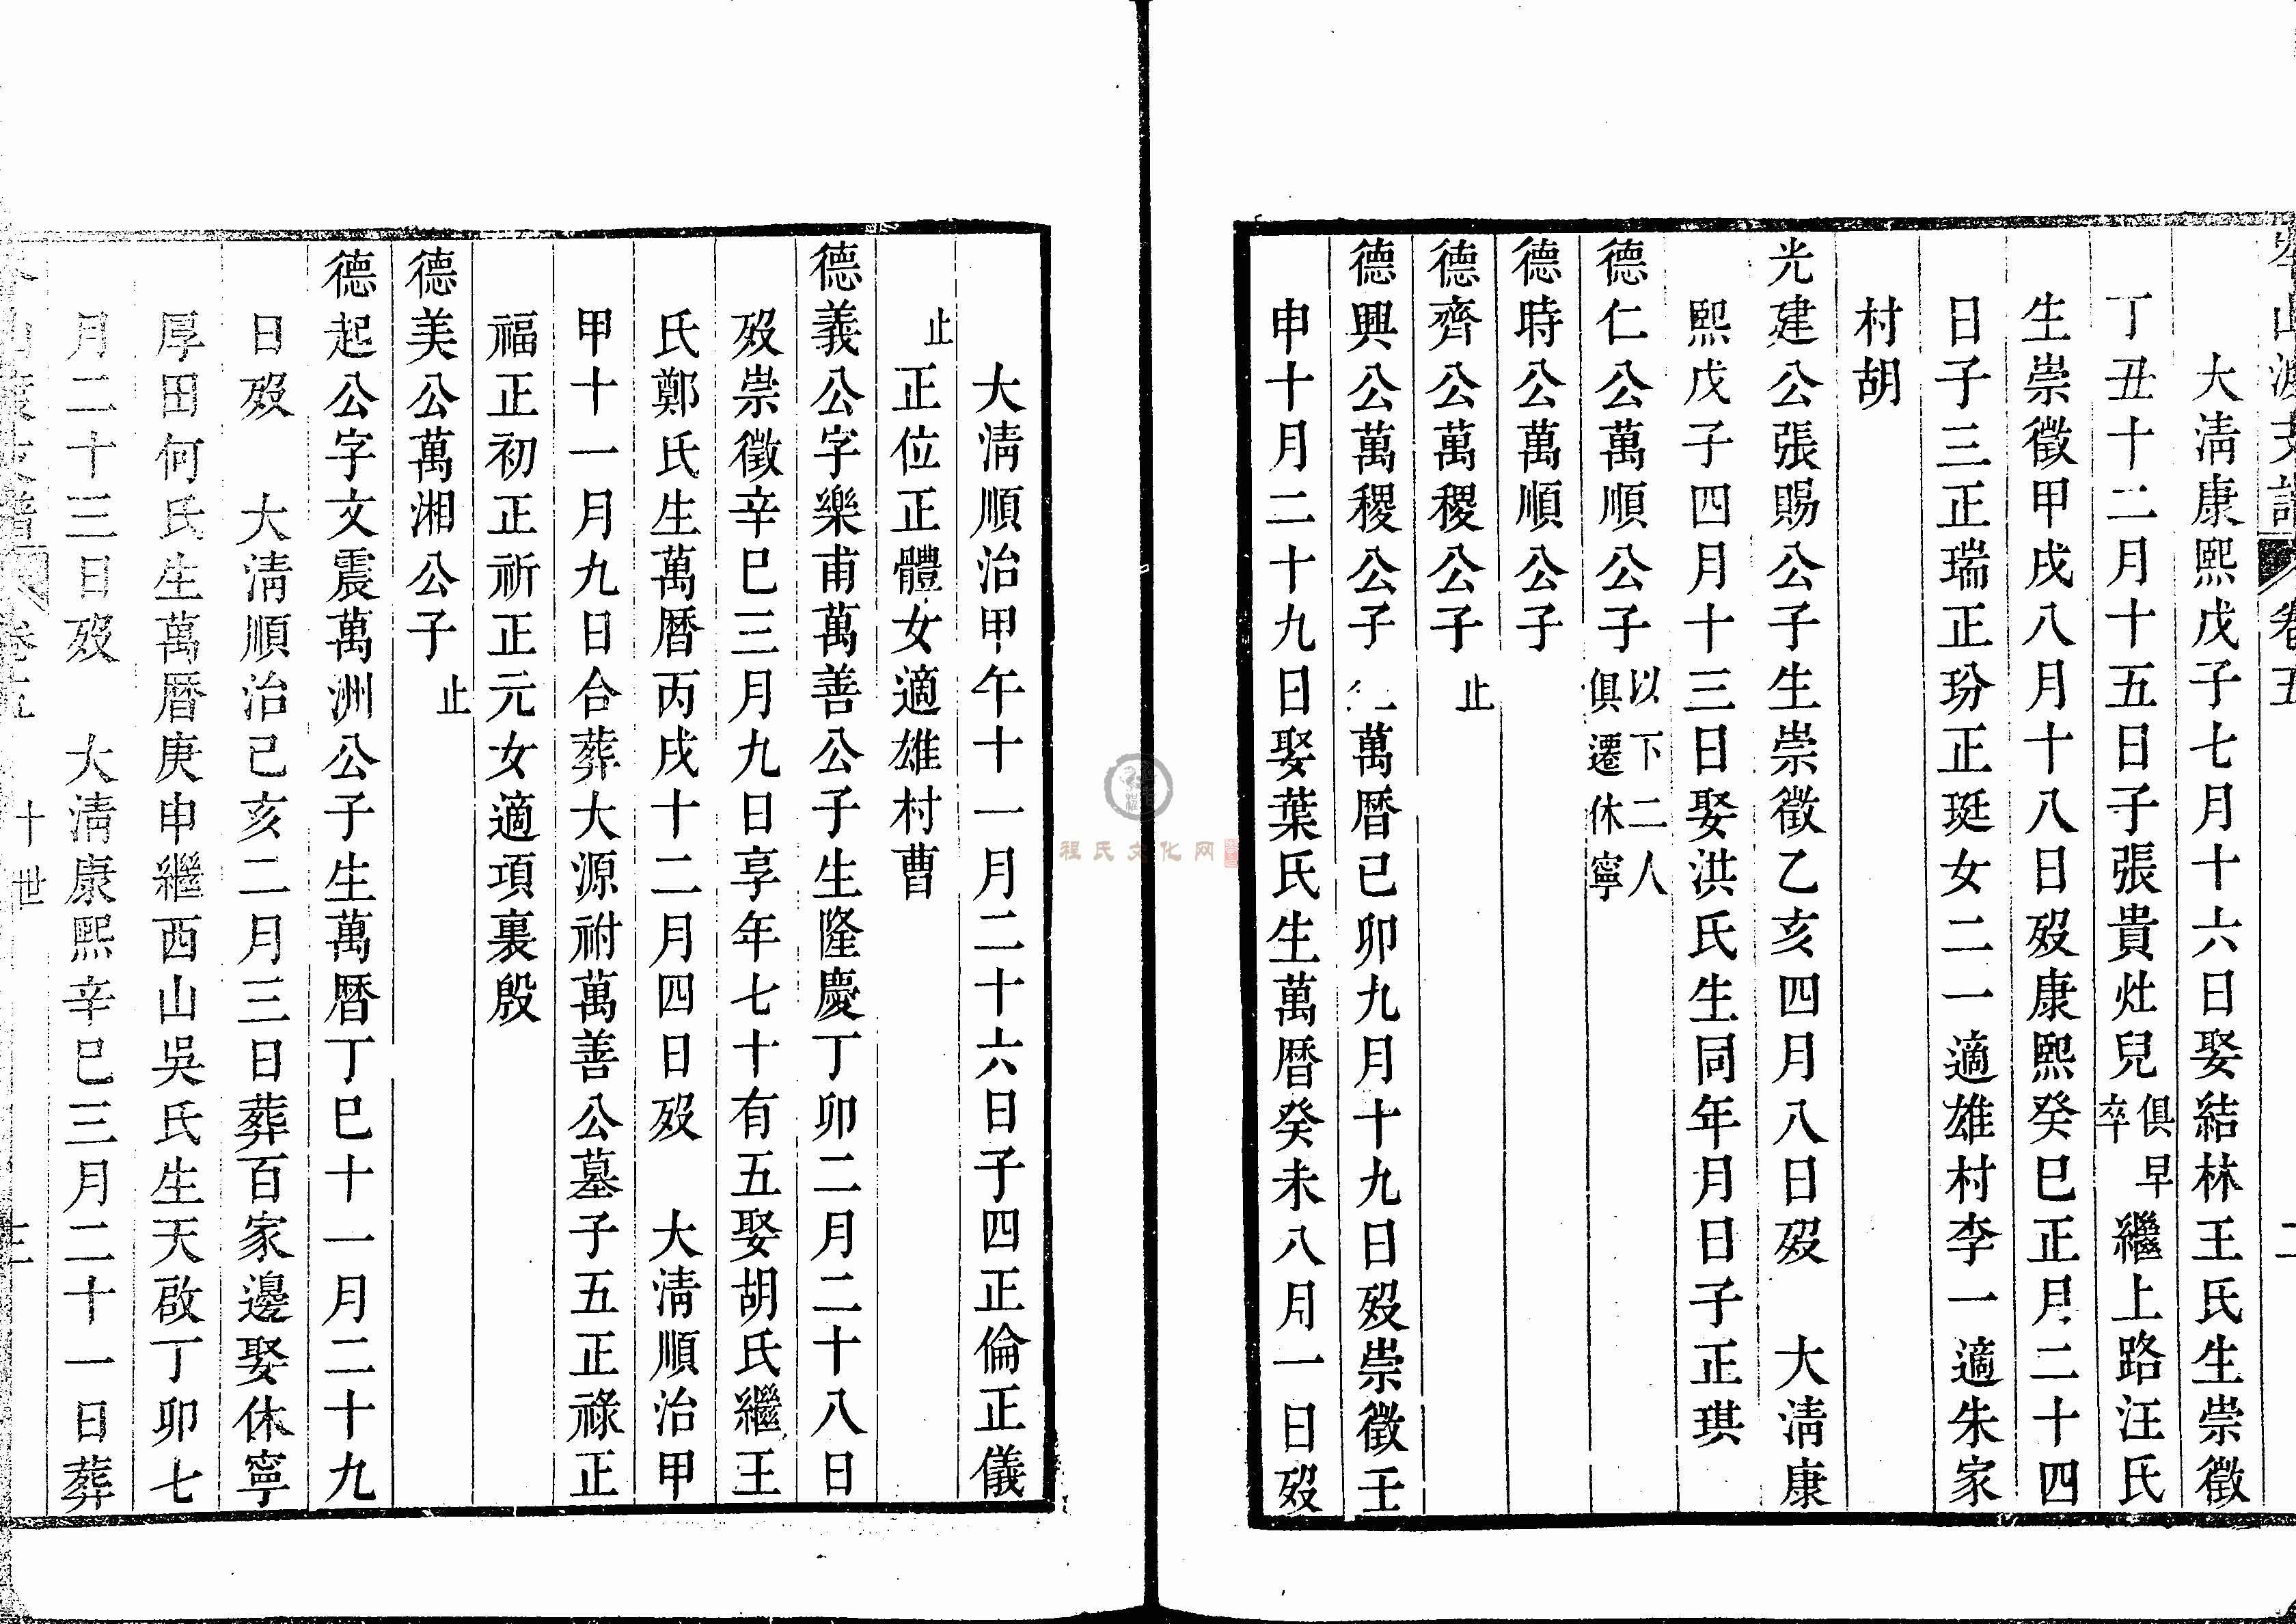 卷五
大清康熙戊子七月十六日娶結林王氏生崇徵
丁丑十二月十五日子張貴灶兒俱早卒繼上路汪氏
生崇徵甲戌八月十八日歿康熙癸巳正月二十四
日子三正瑞正玢正珽女二一適雄村李一適朱家
村胡
光建公張賜公子生崇徵乙亥四月八日歿 大清康
熙戊子四月十三日娶洪氏生同年月日子正琪
德仁公萬順公子以下二人俱遷休寧
德時公萬順公子
德齊公萬稷公子止
德興公萬稷公子 萬曆己卯九月十九日歿崇徵壬
申十月二十九日娶葉氏生萬曆癸未八月一日歿
程氏文化网
大清順治甲午十一月二十六日子四正倫正儀
正位正體女適雄村曹止
德義公字樂甫萬善公子生隆慶丁卯二月二十八日
歿崇徵辛巳三月九日享年七十有五娶胡氏繼王
氏鄭氏生萬曆丙戌十二月四日歿 大清順治甲
甲十一月九日合葬大源祔萬善公墓子五正祿正
福正初正祈正元女適項裏殷
德美公萬湘公子止
德起公字文震萬洲公子生萬曆丁巳十一月二十九
日歿 大清順治己亥二月三日葬百家邊娶休寧
厚田何氏生萬曆庚申繼西山吳氏生天啟丁卯七
月二十三日歿 大清康熙辛巳三月二十一日葬
卷五 十世 三